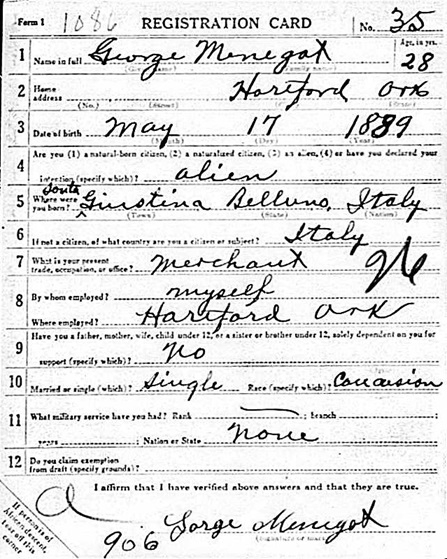 Form 1 1086 REGISTRATION CARD No. 35
1 Name in full George Menegat Age, in yrs. 28
(Given name) (Family name)
2 Home address Hartford Ark
(No.) (Street) (City) (State)
3 Date of birth May 17 1889
(Month) (Day) (Year)
4 Are you (1) a natural-born citizen, (2) a naturalized citizen, (3) an alien, (4) or have you declared your
intention (specify which)? alien
5 Where were you born? Santa Giustina Belluno, Italy
(Town) (State) (Nation)
6 If not a citizen, of what country are you a citizen or subject? Italy
7 What is your present trade, occupation, or office? merchant 26
8 By whom employed? myself
Where employed? Hartford Ark
9 Have you a father, mother, wife, child under 12, or a sister or brother under 12, solely dependent on you for
support (specify which)? No
10 Married or single (which)? Single Race (specify which)? Caucasion
11 What military service have you had? Rank ; branch ;
years ; Nation or State None
12 Do you claim exemption from draft (specify grounds)?
I affirm that I have verified above answers and that they are true.
906 Gorge Menegat
If person is of African descent, tear off this corner